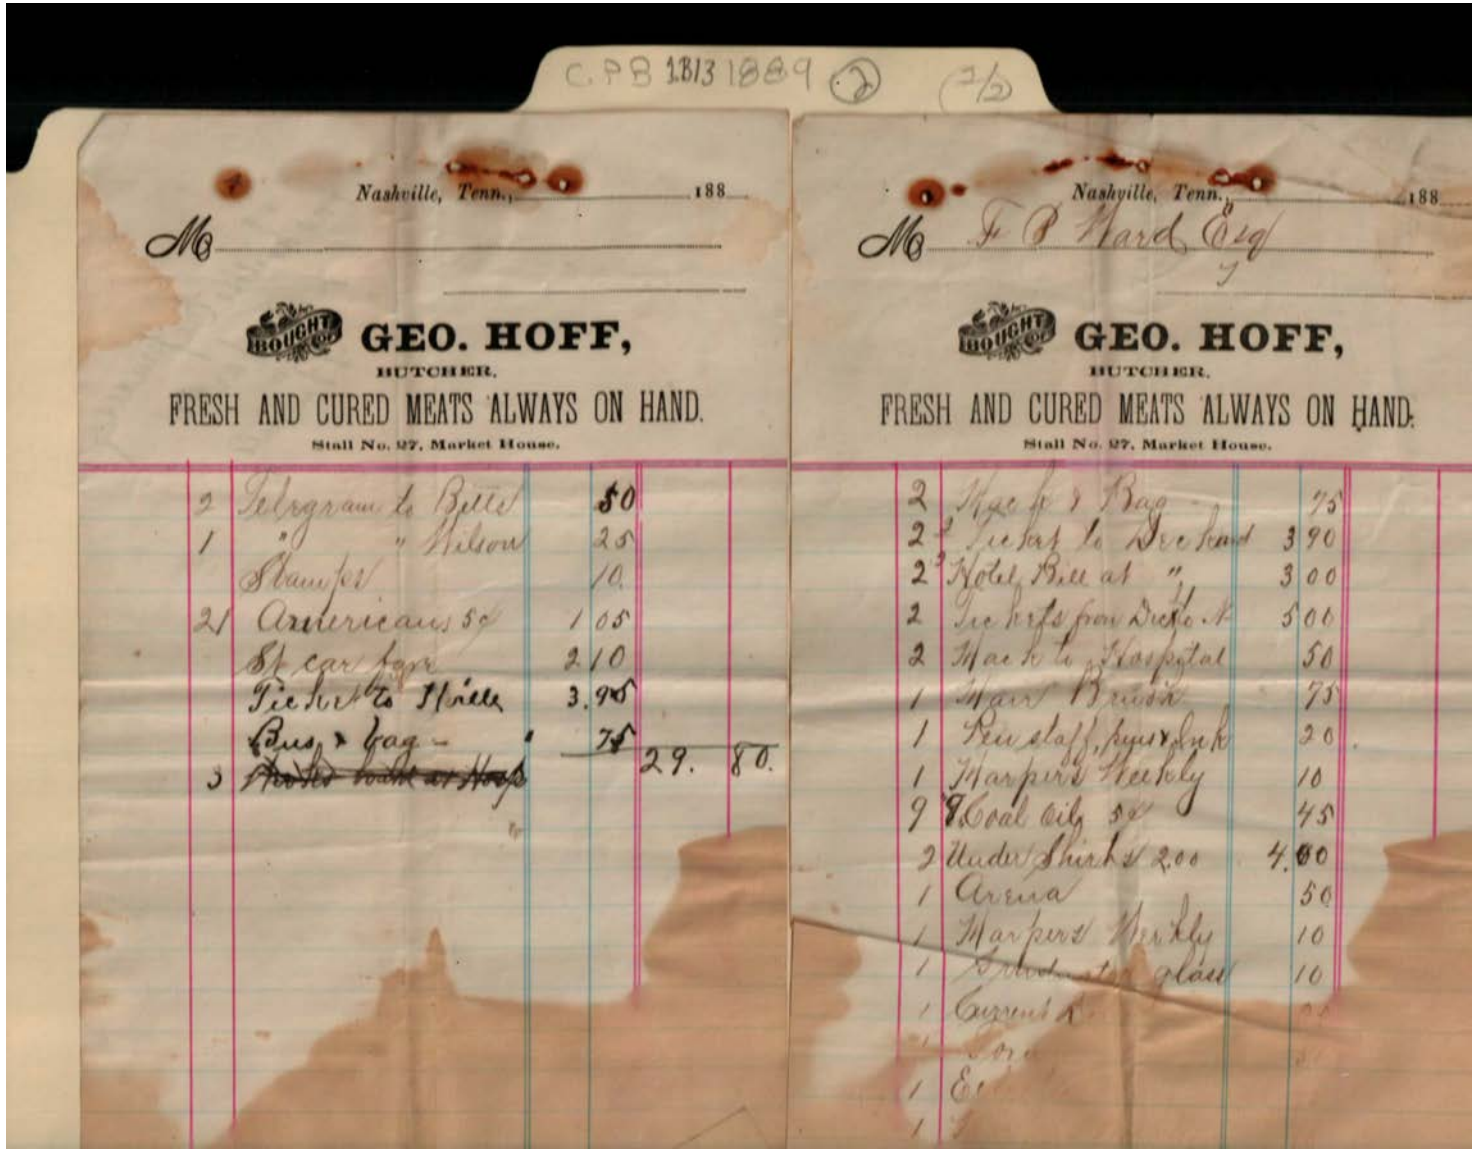 C.P.B 1B13 1889 2 (1/2)
Nashville, Tenn., 188
M
BOUGHT OF GEO. HOFF,
BUTCHER.
FRESH AND CURED MEATS ALWAYS ON HAND.
Stall No. 27, Market House.
2 Telegram to Belle 50
1 " " Wilson 25
Stamps 10
21 Americans 5¢ 1 05
St car fare 2 10
Ticket to 3.95
Bus & bag - 75
29. 80.
3
Nashville, Tenn., 188
M F P Ward Esq
BOUGHT OF GEO. HOFF,
BUTCHER.
FRESH AND CURED MEATS ALWAYS ON HAND.
Stall No. 27, Market House.
2 Hack & Bag 75
2 Ticket to Decherd 3 90
2 Hotel Bill at " 3 00
2 Tickets from to N 5 00
2 Hack to Hospital 50
1 Hair Brush 75
1 Pen staff, pens & Ink 20
1 Harpers Weekly 10
9 Coal Oil 5¢ 45
2 Under Shirts 2.00 4.00
1 Arena 50
1 Harpers Weekly 10
1 glass 10
1
1
1
1